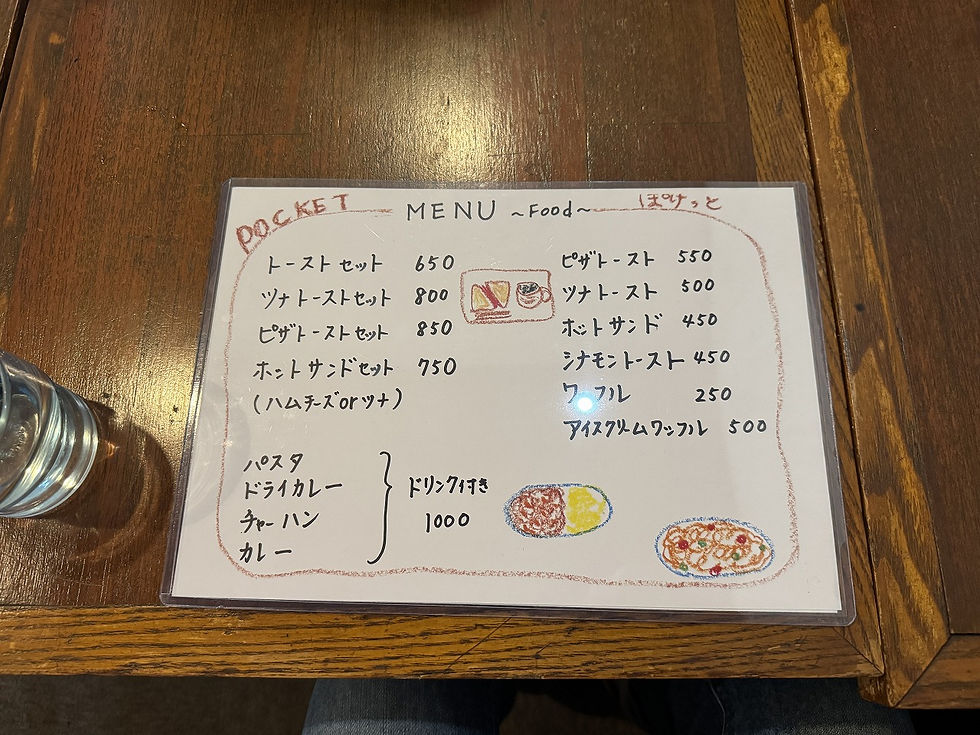 POCKET MENU ~Food~ ぽけっと
トーストセット 650
ツナトーストセット 800
ピザトーストセット 850
ホットサンドセット 750
(ハムチーズorツナ)
ピザトースト 550
ツナトースト 500
ホットサンド 450
シナモントースト 450
ワッフル 250
アイスクリームワッフル 500
パスタ
ドライカレー
チャーハン
カレー
ドリンク付き
1000